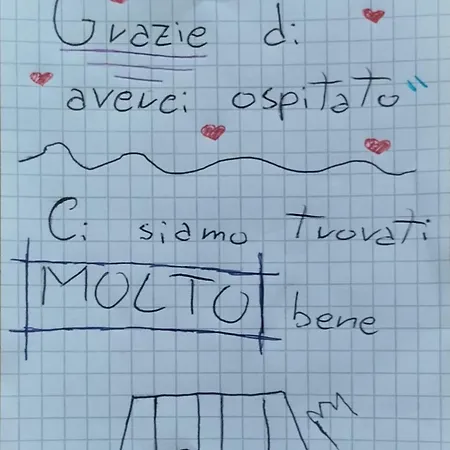 Grazie di
averci ospitato"
Ci siamo trovati
MOLTO bene